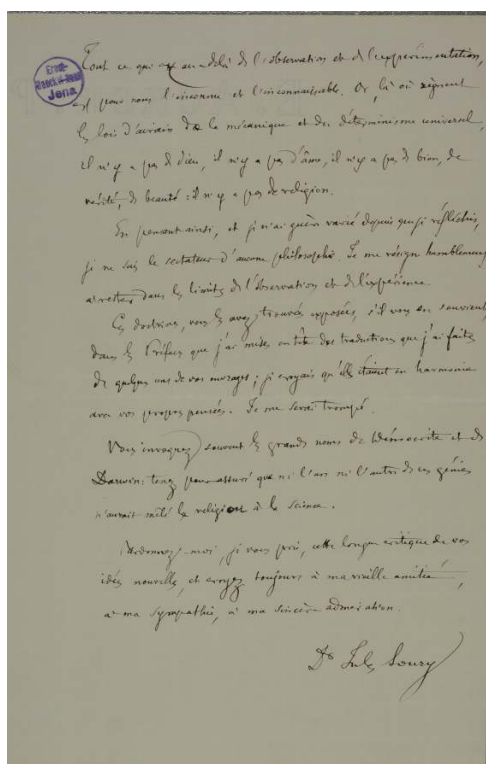 Tout ce qui est au delà de l'observation et de l'expérimentation,
Ernst-
Haeckel-Haus
Jena
est pour nous l'inconnu et l'inconnaissable. Or, là où règnent
les lois d'airain de la mécanique et du déterminisme universel,
il n'y a pas de dieu, il n'y a pas d'âme, il n'y a pas de bien, de
vérité, de beauté : il n'y a pas de religion.
En pensant ainsi, et je n'ai guère varié depuis que je réfléchis,
je ne suis le sectateur d'aucune philosophie. Je me résigne humblement
à rester dans les limites de l'observation et de l'expérience.
Ces doctrines, vous les avez trouvées exposées, s'il vous en souvient,
dans les Préfaces que j'ai mises en tête des traductions que j'ai faites
de quelques uns de vos ouvrages ; je croyais qu'elles étaient en harmonie
avec vos propres pensées. Je me serai trompé.
Vous invoquez souvent les grands noms de Démocrite et de
Darwin : tenez pour assuré que ni l'un ni l'autre de ces génies
n'aurait mêlé la religion à la science.
Pardonnez-moi, je vous prie, cette longue critique de vos
idées nouvelles, et croyez toujours à ma vieille amitié,
à ma sympathie, à ma sincère admiration.
Dr Jules Soury